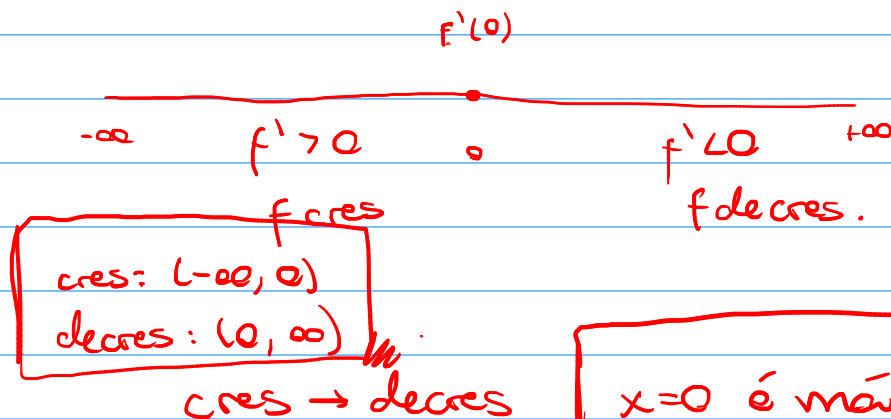 f'(0)
-∞ f' > 0 0 f' < 0 +∞
f cres f decres.
cres: (-∞, 0)
decres: (0, ∞)
cres → decres
x=0 é